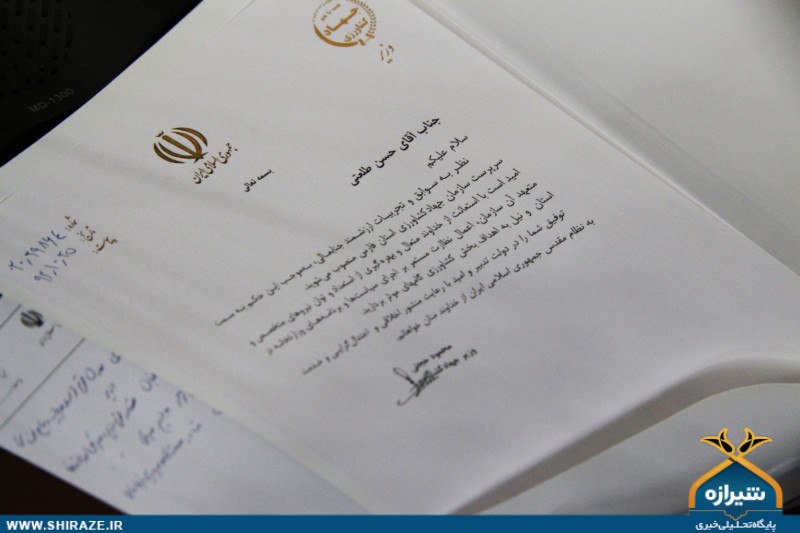 MD-1300
جهاد
کشاورزی
وزیر
جمهوری اسلامی ایران
بسمه تعالی
شماره:
۲۰,۲۹۸۶۴
تاریخ:
۹۲,۱۰,۲۵
پیوست:
جناب آقای حسن طلعتی
سلام علیکم
نظر به سوابق و تجربیات ارزشمند جنابعالی، بموجب این حکم به سمت
سرپرست سازمان جهادکشاورزی استان فارس منصوب می‌شوید.
امید است با استعانت از خداوند متعال و بهره‌گیری از استعداد و توان نیروهای متخصص و
متعهد آن سازمان، اعمال نظارت مستمر بر اجرای سیاست‌ها و برنامه‌های وزارتخانه در
استان و نیل به اهداف بخش کشاورزی گامهای موثر بردارید.
توفیق شما را در دولت تدبیر و امید با رعایت منشور اخلاقی و اعتدال‌گرایی و خدمت
به نظام مقدس جمهوری اسلامی ایران از خداوند منان خواهانم.
محمود حجتی
وزیر جهاد
شیرازه
پایگاه تحلیلی خبری
WWW.SHIRAZE.IR
WWW.SHIRAZE.IR